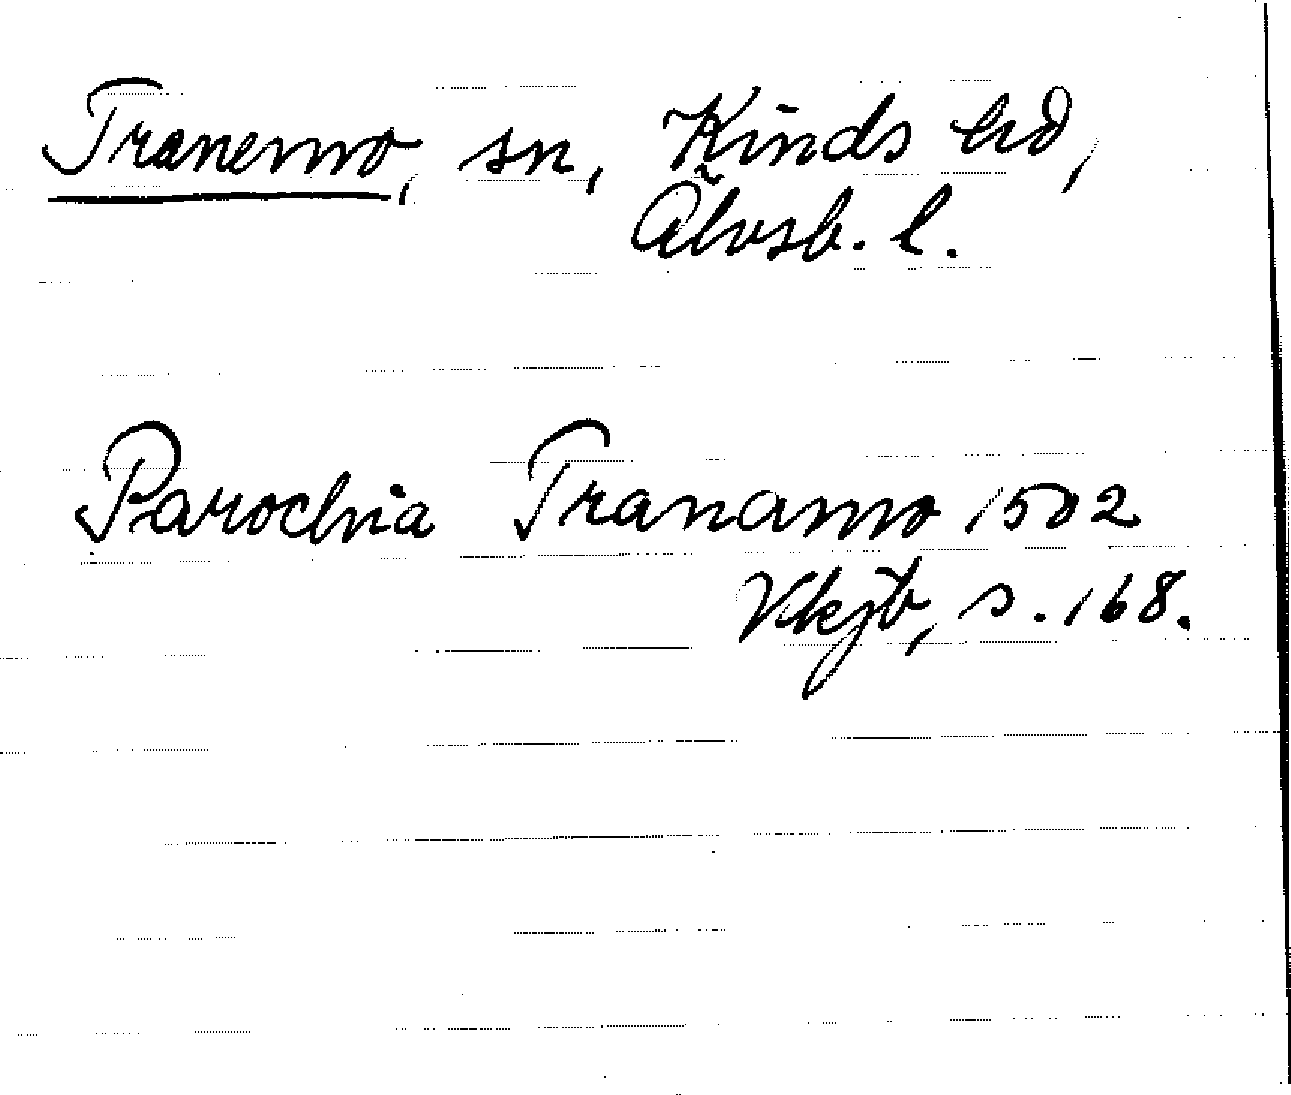 Tranemo, sn, Kinds hd,
Älvsb. l.
Parochia Tranamo 1502
Vkjb, s. 168.